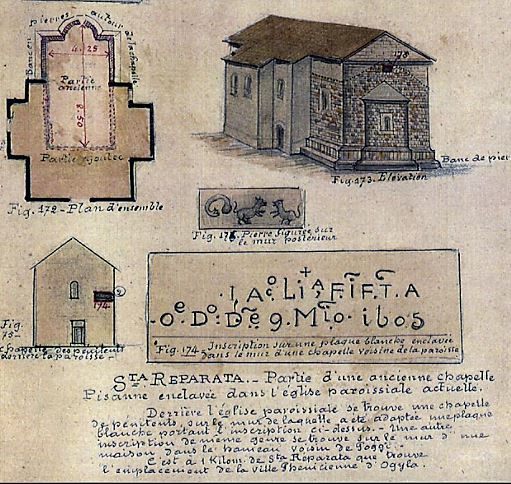 Banc en pierres autour de la chapelle
4.25
Partie
ancienne
8.50
Partie ajoutée
Fig. 172 - Plan d'ensemble
175
Banc de pier
Fig. 173. Elévation
Fig. 175. Pierre figurée sur
le mur postérieur
174
Fig
75-
chapelle des pénitents
derrière la paroisse -
Fig. 174 - Inscription sur une plaque blanche enclavée
dans le mur d'une chapelle voisine de la paroisse
STA REPARATA. - Partie d'une ancienne chapelle
Pisanne enclavée dans l'église paroissiale actuelle.
Derrière l'église paroissiale se trouve une chapelle
de pénitents, sur le mur de laquelle a été adaptée une plaque
blanche portant l'inscription ci-dessus. - Une autre
inscription de même genre se trouve sur le mur d'une
maison dans le hameau voisin de Poggi.
C'est à 1 Kilom. de Sta Reparata que trouve
l'emplacement de la ville Phénicienne d'Ogyla.